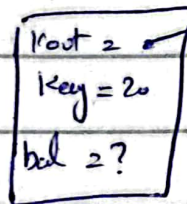 root =
key = 20
bal = ?